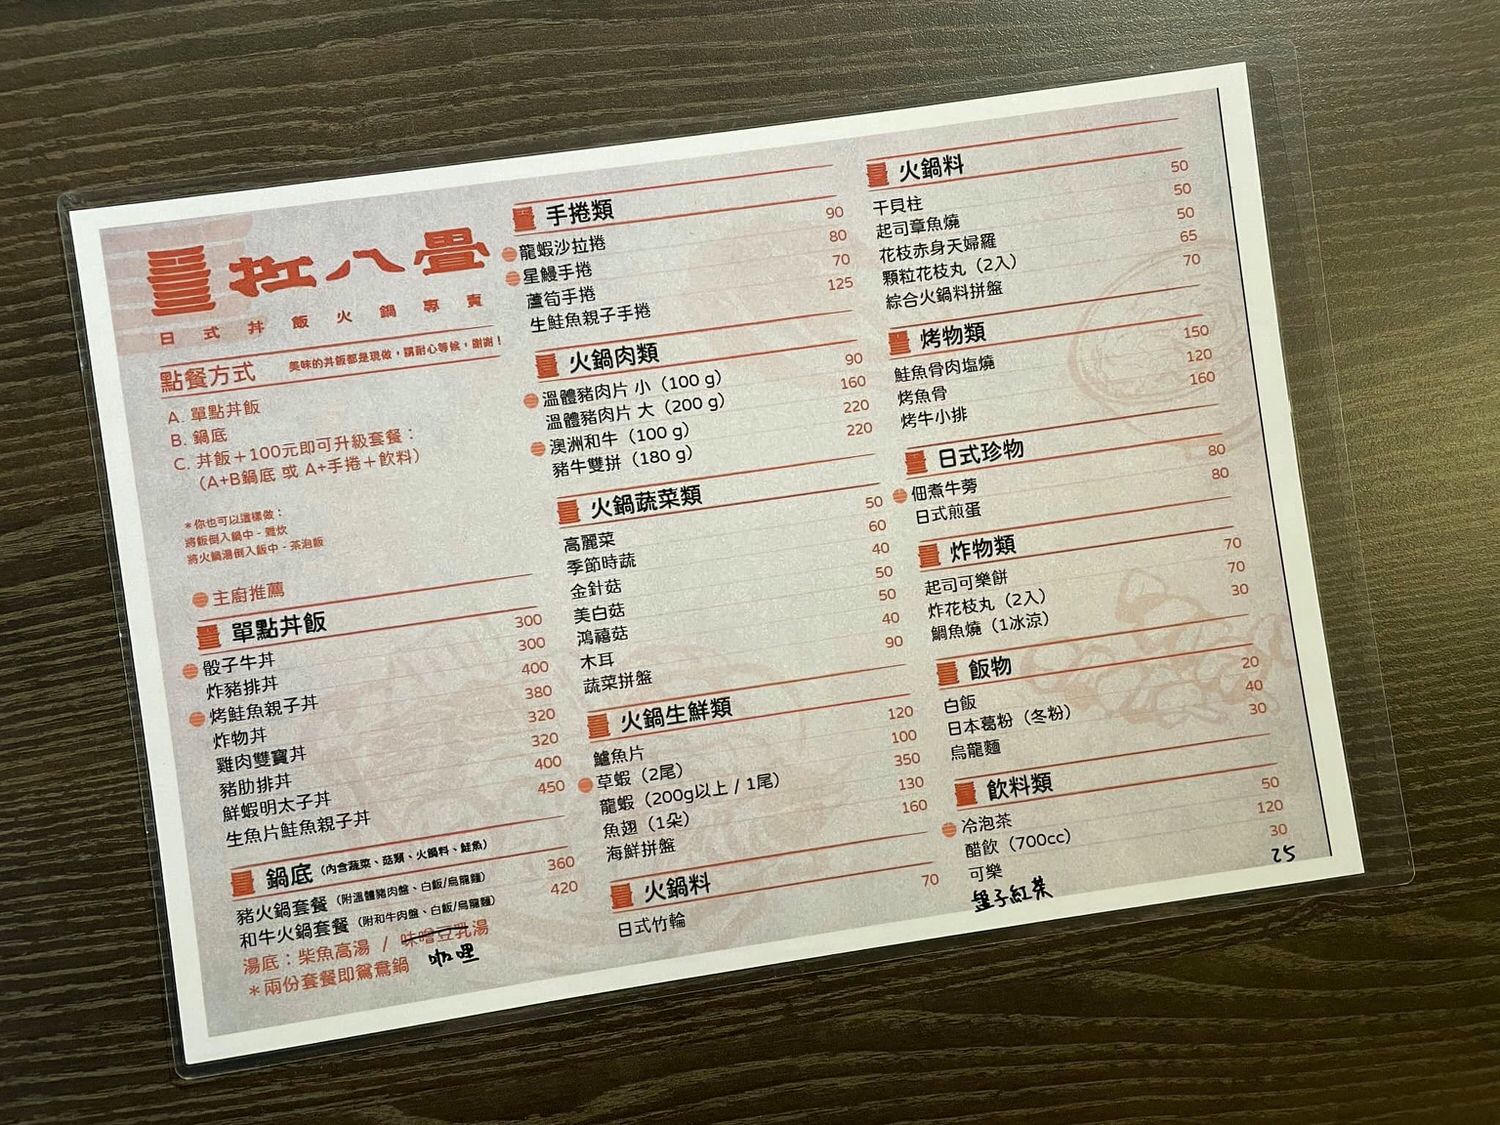 扛八疊
日式丼飯火鍋專賣
點餐方式 美味的丼飯都是現做，請耐心等候，謝謝！
A. 單點丼飯
B. 鍋底
C. 丼飯＋100元即可升級套餐：
（A+B鍋底 或 A+手捲＋飲料）
＊你也可以這樣做：
將飯倒入鍋中 - 雜炊
將火鍋湯倒入飯中 - 茶泡飯
主廚推薦
單點丼飯
骰子牛丼 300
炸豬排丼 300
烤鮭魚親子丼 400
炸物丼 380
雞肉雙寶丼 320
豬肋排丼 320
鮮蝦明太子丼 400
生魚片鮭魚親子丼 450
鍋底（內含蔬菜、菇類、火鍋料、鮭魚）
豬火鍋套餐（附溫體豬肉盤、白飯/烏龍麵） 360
和牛火鍋套餐（附和牛肉盤、白飯/烏龍麵） 420
湯底：柴魚高湯 / 味噌豆乳湯
咖哩
＊兩份套餐即鴛鴦鍋
手捲類
龍蝦沙拉捲 90
星鰻手捲 80
蘆筍手捲 70
生鮭魚親子手捲 125
火鍋肉類
溫體豬肉片 小（100 g） 90
溫體豬肉片 大（200 g） 160
澳洲和牛（100 g） 220
豬牛雙拼（180 g） 220
火鍋蔬菜類
高麗菜 50
季節時蔬 60
金針菇 40
美白菇 50
鴻禧菇 50
木耳 40
蔬菜拼盤 90
火鍋生鮮類
鱸魚片 120
草蝦（2尾） 100
龍蝦（200g以上 / 1尾） 350
魚翅（1朵） 130
海鮮拼盤 160
火鍋料
日式竹輪 70
火鍋料
干貝柱 50
起司章魚燒 50
花枝赤身天婦羅 50
顆粒花枝丸（2入） 65
綜合火鍋料拼盤 70
烤物類
鮭魚骨肉塩燒 150
烤魚骨 120
烤牛小排 160
日式珍物
佃煮牛蒡 80
日式煎蛋 80
炸物類
起司可樂餅 70
炸花枝丸（2入） 70
鯛魚燒（1冰涼） 30
飯物
白飯 20
日本葛粉（冬粉） 40
烏龍麵 30
飲料類
冷泡茶 50
醋飲（700cc） 120
可樂 30
子紅茶 25